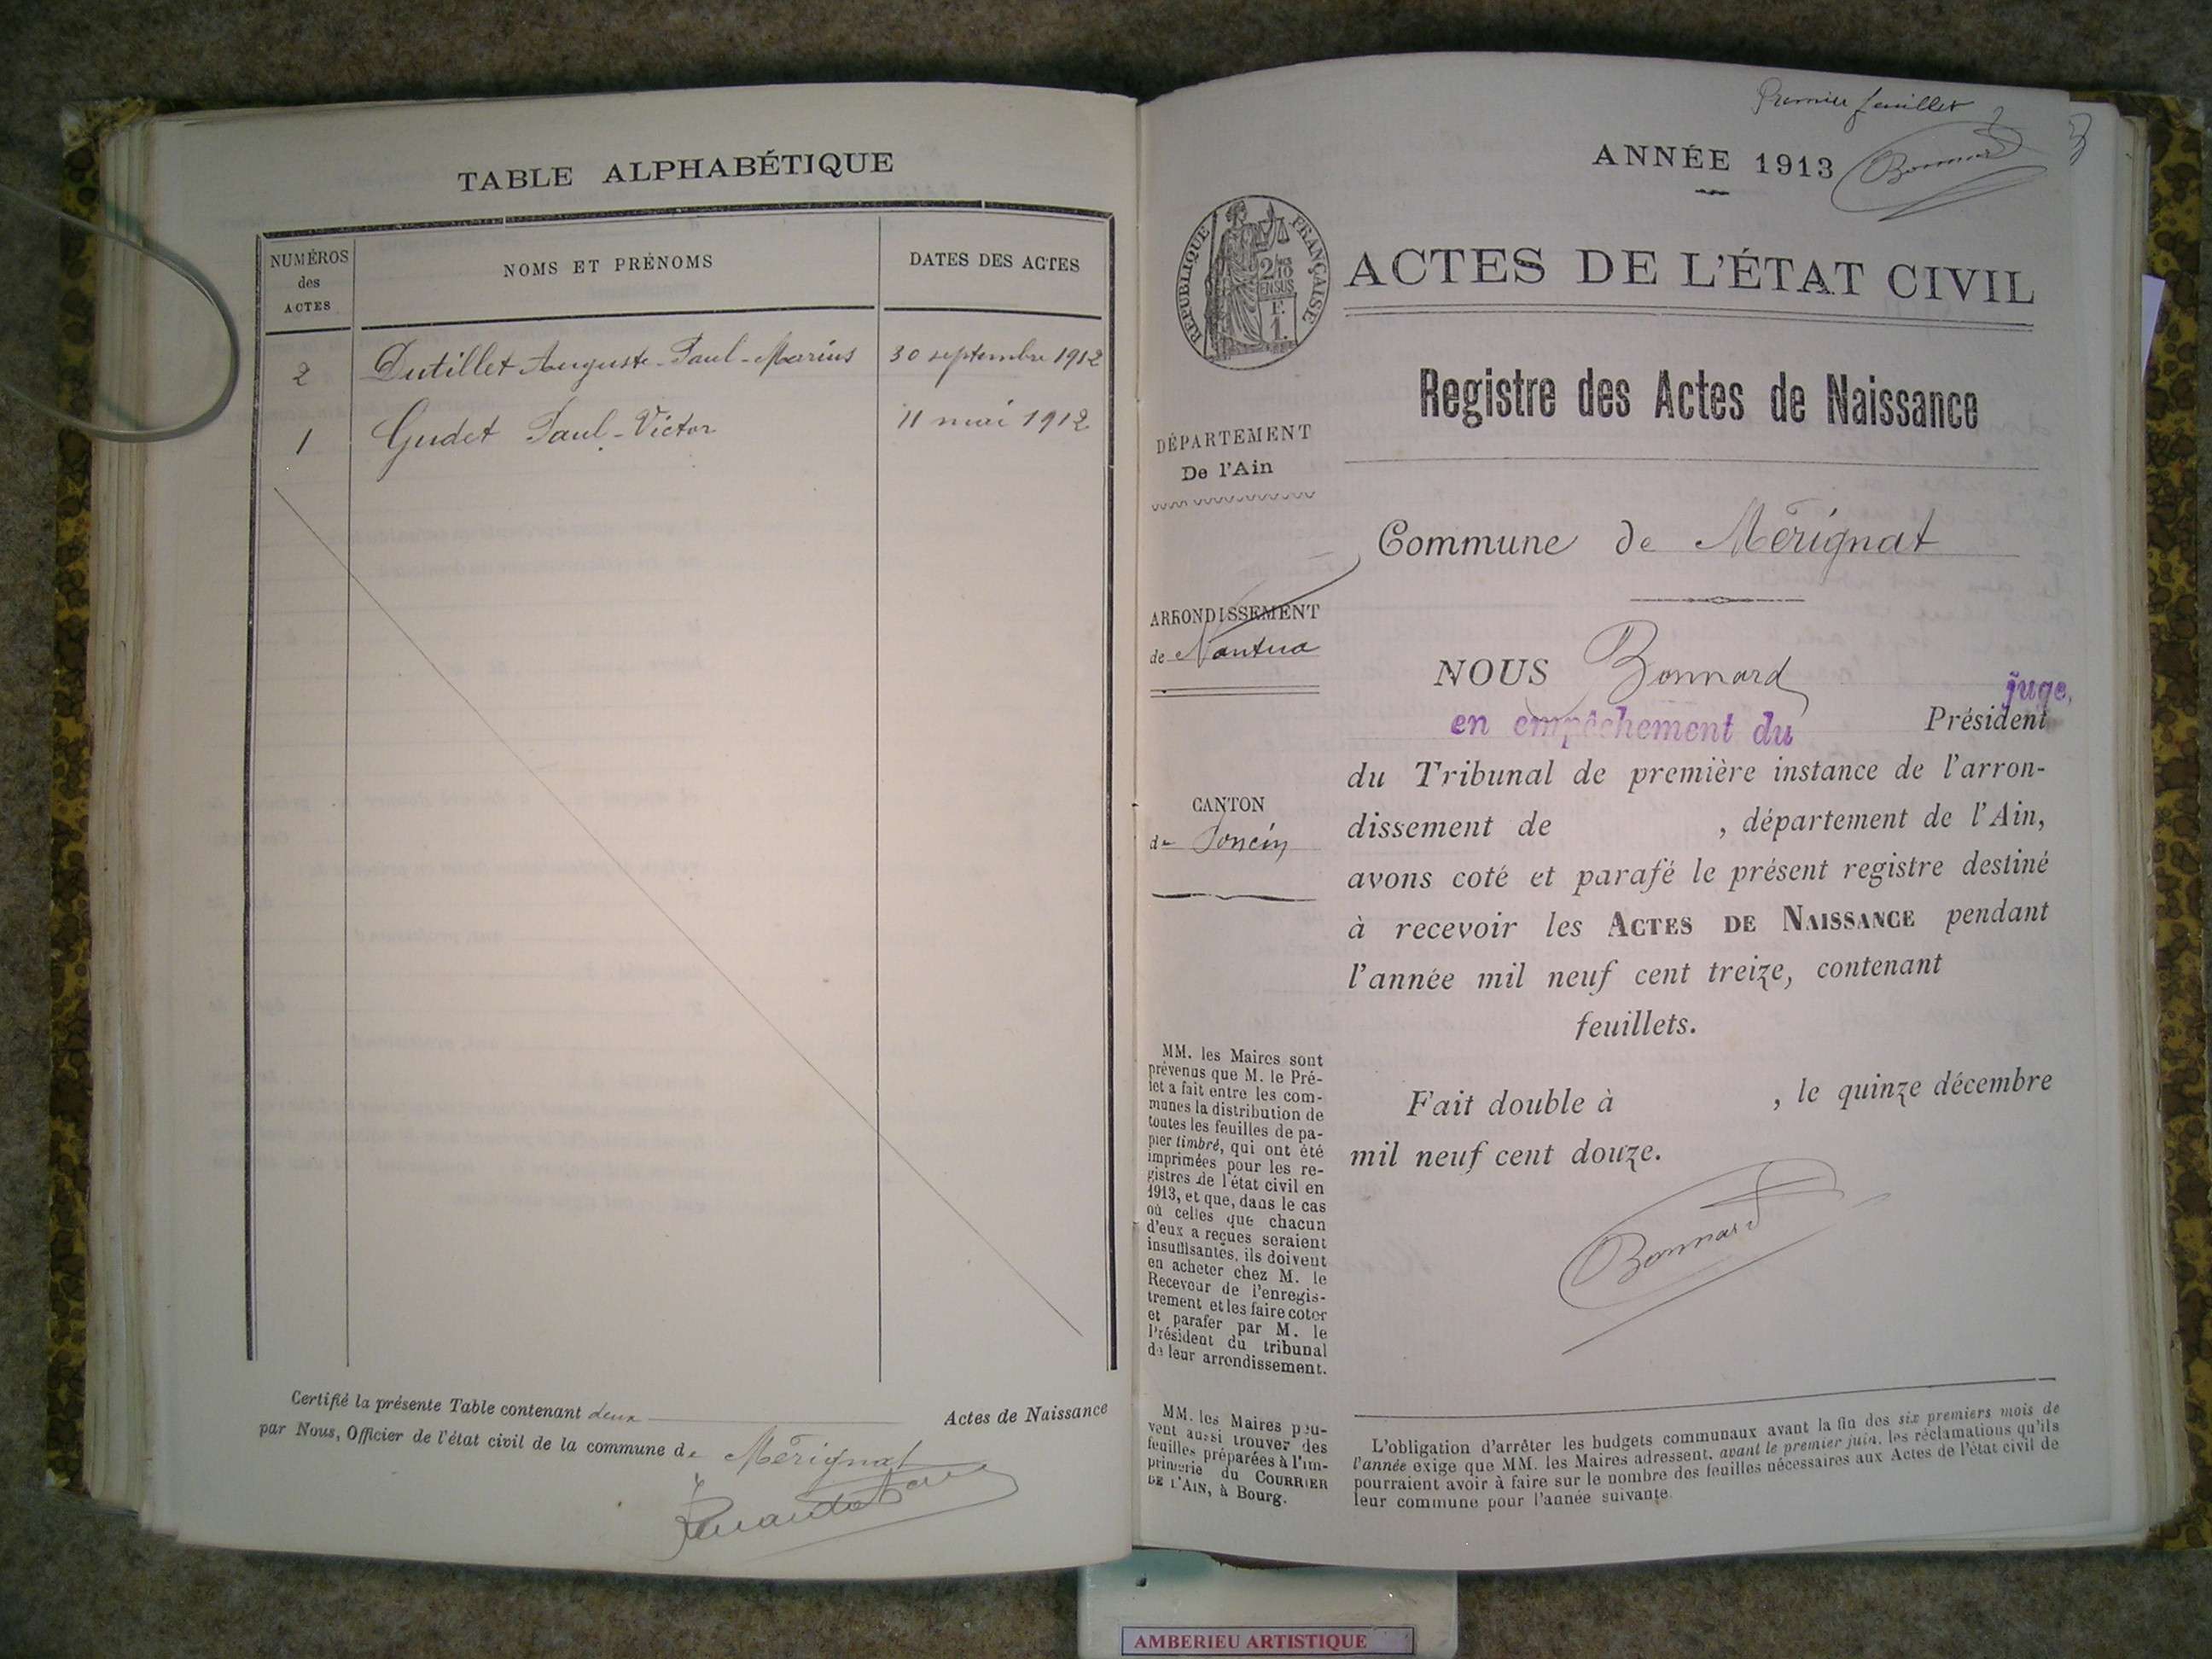 TABLE ALPHABÉTIQUE
NUMÉROS des ACTES
NOMS ET PRÉNOMS
DATES DES ACTES
2 Dutillet Auguste-Paul-Marius 30 septembre 1912
1 Gudet Paul-Victor 11 mai 1912
Certifié la présente Table contenant deux Actes de Naissance
par Nous, Officier de l'état civil de la commune de Mérignat
Premier feuillet
ANNÉE 1913
Bonnard
RÉPUBLIQUE FRANÇAISE
2/10
EN SUS
F.
1.
ACTES DE L'ÉTAT CIVIL
Registre des Actes de Naissance
DÉPARTEMENT
De l'Ain
Commune de Mérignat
ARRONDISSEMENT
de Nantua
NOUS Bonnard
juge,
en empêchement du Président
du Tribunal de première instance de l'arron-
dissement de , département de l'Ain,
avons coté et parafé le présent registre destiné
à recevoir les ACTES DE NAISSANCE pendant
l'année mil neuf cent treize, contenant
feuillets.
CANTON
de Poncin
Fait double à , le quinze décembre
mil neuf cent douze.
Bonnard
MM. les Maires sont
prévenus que M. le Pré-
fet a fait entre les com-
munes la distribution de
toutes les feuilles de pa-
pier timbré, qui ont été
imprimées pour les re-
gistres de l'état civil en
1913, et que, dans le cas
où celles que chacun
d'eux a reçues seraient
insuffisantes, ils doivent
en acheter chez M. le
Receveur de l'enregis-
trement et les faire coter
et parafer par M. le
Président du tribunal
de leur arrondissement.
MM. les Maires peu-
vent aussi trouver des
feuilles préparées à l'im-
primerie du COURRIER
DE L'AIN, à Bourg.
L'obligation d'arrêter les budgets communaux avant la fin des six premiers mois de
l'année exige que MM. les Maires adressent, avant le premier juin, les réclamations qu'ils
pourraient avoir à faire sur le nombre des feuilles nécessaires aux Actes de l'état civil de
leur commune pour l'année suivante.
AMBERIEU ARTISTIQUE